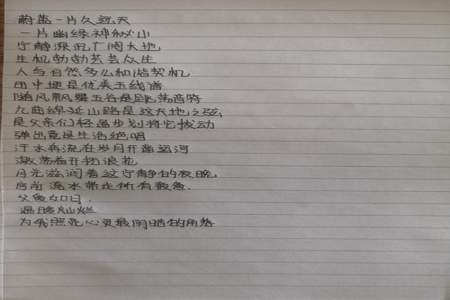 蔚蓝一片久远天
一片幽绿神秘山
宁静深沉广阔大地
生机勃勃芸芸众生
人与自然多么和谐契机
田中埂是优美五线谱
随风飘飘五谷是跳荡音符
九曲绵延山路是这天地之弦
是父亲们轻描步划将它拨动
弹出竟是生活绝唱
汗水奔流在岁月开凿运河
激荡着开拓浪花
月光滋润着这宁静的夜晚
房前流水带走所有疲惫
父爱如日
温暖灿烂
为我照亮心灵最阴暗的角落